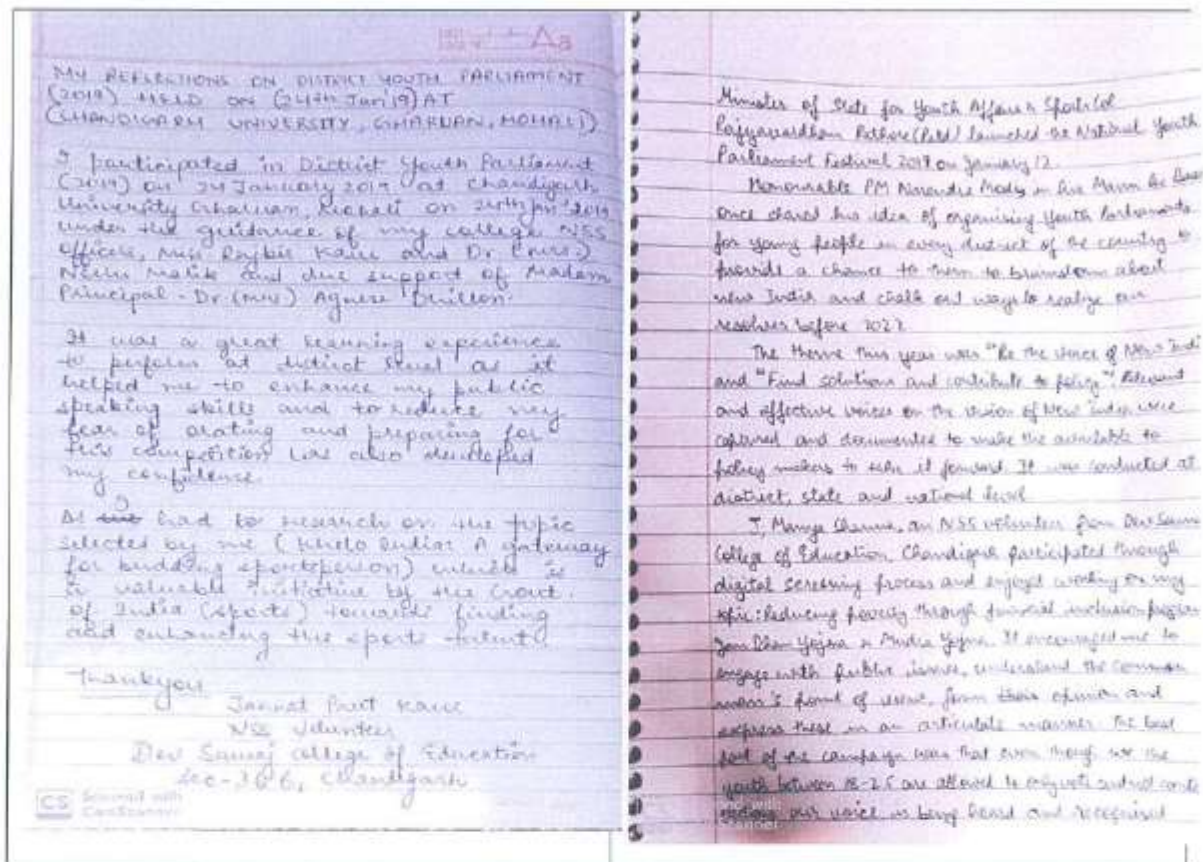 Aa
MY REFLECTIONS ON DISTRICT YOUTH PARLIAMENT
(2019) HELD ON (24th Jan'19) AT
(CHANDIGARH UNIVERSITY, GHARUAN, MOHALI)
I participated in District Youth Parliament
(2019) on 24 January 2019 at Chandigarh
University Gharuan, Mohali on 24th Jan' 2019
under the guidance of my college NSS
officers, Miss Rajbir Kaur and Dr (mrs.)
Neelu Malik and due support of Madam
Principal - Dr (mrs) Agnese Dhillon.
It was a great learning experience
to perform at district level as it
helped me to enhance my public
speaking skills and to reduce my
fear of orating and preparing for
this competition has also developed
my confidence.
As I had to research on the topic
selected by me (Khelo India: A gateway
for budding sportsperson) which is
a valuable initiative by the Govt.
of India (sports) towards finding
and enhancing the sports talent.
Thankyou
Jannat Preet Kaur
NSS Volunteer
Dev Samaj College of Education
Sec-36 B, Chandigarh
CS Scanned with
CamScanner
Minister of State for Youth Affairs & Sports Col
Rajyavardhan Rathore (Retd) launched the National Youth
Parliament Festival 2019 on January 12.
Honourable PM Narendra Modi, in his Mann Ki
once shared his idea of organising Youth Parliaments
for young people in every district of the country to
provide a chance to them to brainstorm about
new India and chalk out ways to realize our
resolves before 2022
The theme this year was "Be the Voice of New Indi
and "Find solutions and contribute to policy". Relevant
and effective voices on the vision of New India were
captured and documented to make the available to
policy makers to take it forward. It was conducted at
district, state and national level
I, Manya Sharma, an NSS volunteer from Dev Samaj
College of Education, Chandigarh participated through
digital screening process and enjoyed working on my
topic: Reducing poverty through financial inclusion program
Jan Dhan Yojna & Mudra Yojna. It encouraged me to
engage with public issues, understand the common
man's point of view, form their opinion and
express these in an articulate manner. The best
part of the campaign was that even though we the
youth between 18-25 are allowed to only vote and not
our voice is being heard and recognised